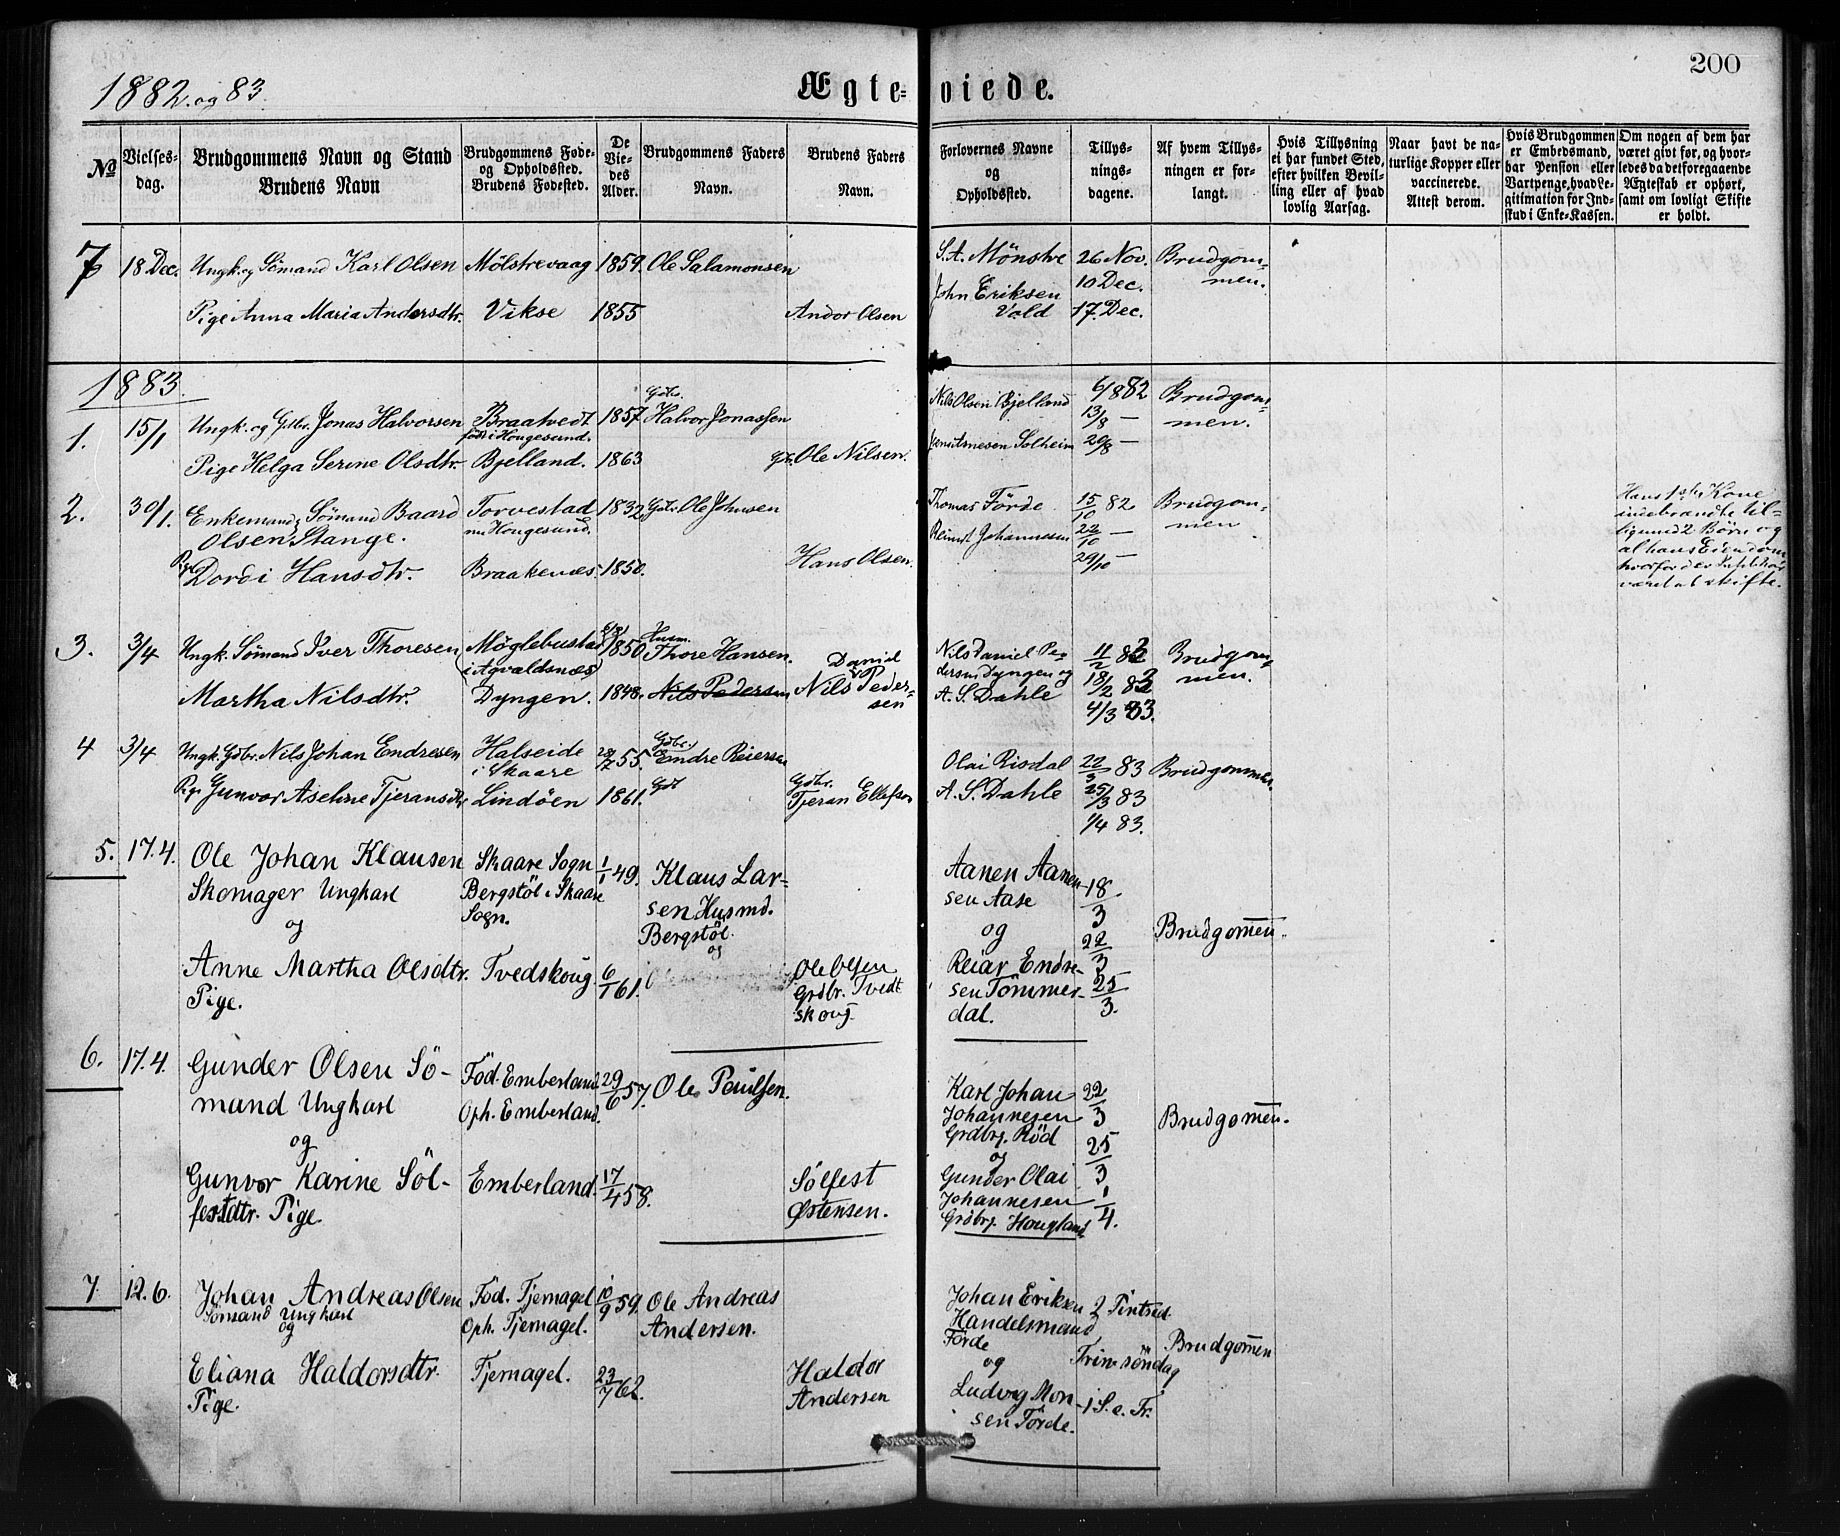 1882. og 83.
Ægte- viede.
200
No
Vielses-
dag.
Brudgommens Navn og Stand
Brudens Navn
Brudgommens Føde-
og Opholdssted.
Brudens Fødested.
De
Vie-
des
Alder.
Brudgommens Faders
Navn.
Brudens Faders
Navn.
Forlovernes Navne
og
Opholdssted.
Tillys-
nings-
dagene.
Af hvem Tillys-
ningen er for-
langt.
Hvis Tillysning
ei har fundet Sted,
efter hvilken Bevil-
ling eller af hvad
lovlig Aarsag.
Naar havt de na-
turlige Kopper eller
vaccinerede.
Attest derom.
Hvis Brudgommen
er Embedsmand,
har Pension eller
Vartpenge, hvad Le-
gitimation for Ind-
skud i Enke-Kassen.
Om nogen af dem har
været givt før, og hvor-
ledes da det foregaaende
Ægteskab er ophørt,
samt om lovligt Skifte
er holdt.
7 18 Dec. Ungk. og Sømand Karl Olsen Mölstrevaag 1859. Ole Salamonsen
S. A. Mönstre 26 Nov. Brudgom-
men.
10 Dec.
John Eriksen
Vold 17. Dec.
Pige Anna Maria Andersdtr. Vikse 1855 Andor Olsen
1883.
1. 15/1 Ungk. og Gdbr. Jonas Halvorsen Braatvedt 1857. Gdbr. Halvor Jonassen
född i Hougesund.
Nils Olsen Bjelland 6/8 82 Brudgom-
men.
13/8 —
20/8 —
Solheim
Pige Helga Serine Olsdtr. Bjelland. 1863 Ole Nilsen.
2. 30/1. Enkemand, Sømand Baard Torvestad 1832. Gdbr. Ole Johnsen
Olsen Stange. nu Hougesund.
Thomas Förde. 15/10 82 Brudgom-
men
22/10 —
Johannesen
29/10 —
Pige Dordi Hansdtr. Braakenæs. 1850. Hans Olsen.
Hans 1ste Kone
indebrændte til-
ligemed 2 Börn og
al hans Eiendom
hvorfor der
været skifte.
3. 3/4 Ungk. Sømand Iver Thoresen Möglebustad 1850. Husm. Thore Hansen.
i Agvaldsnæs
Nils Daniel Pe-
dersen Dyngen og
A. S. Dahle
11/2 83 Brudgom-
men.
18/2 83
4/3 83.
Martha Nilsdtr. Dyngen. 1848. Nils Pedersen Nils Daniel Peder-
sen
4 3/4 Ungk. Gdbr. Nils Johan Endresen Halseide 55. Gdbr. Endre Reiersen
i Skaare
Olai Risdal 22/3 83 Brudgommen.
A. S. Dahle 25/3 83
1/4 83.
Pige Gunvor Aseline Tjeransdtr Lindöen 1861. Gdbr. Tjeran Ellefsen
5. 17.4. Ole Johan Klausen Skaare Sogn 1/1 49. Klaus Lar-
Skomager Ungkarl Bergstöl i Skaare sen Husmd.
og Sogn. Bergstöl.
og
Aanen Aanen-
sen Aase
og
Reiar Endre-
sen Tömmer-
dal.
18/3
22/3
25/3.
Brudgom̄en.
Anne Martha Olsdtr. Tvedskoug. 6/1 61. Ole Olsen
Pige. Grdbr. Tvedt
skoug.
6. 17.4. Gunder Olsen Sö- Föd. Emberland. 29/6 57. Ole Paulsen.
mand Ungkarl Oph. Emberland.
og
Karl Johan
Johannesen
Grdbrg. Röd
og
Gunder Olai
Johannesen
Grdbrg. Hougland
22/3
25/3
1/4.
Brudgom̄en.
Gunvor Karine Söl- Emberland. 17/4 58. Sölfest
festdtr. Pige. Østensen.
7. 12.6. Johan Andreas Olsen Föd. Tjernagel 10/9 59. Ole Andreas
Sömand Ungkarl Oph. Tjernagel. Andersen.
og
Johan Eriksen
Handelsmand,
Förde
og
Ludvig Mon-
sen Förde.
Trin: söndag
1 S. e. Tr.
Brudgom̄en
Eliana Haldorsdtr. Tjernagel. 23/7 62. Haldor
Pige. Andersen